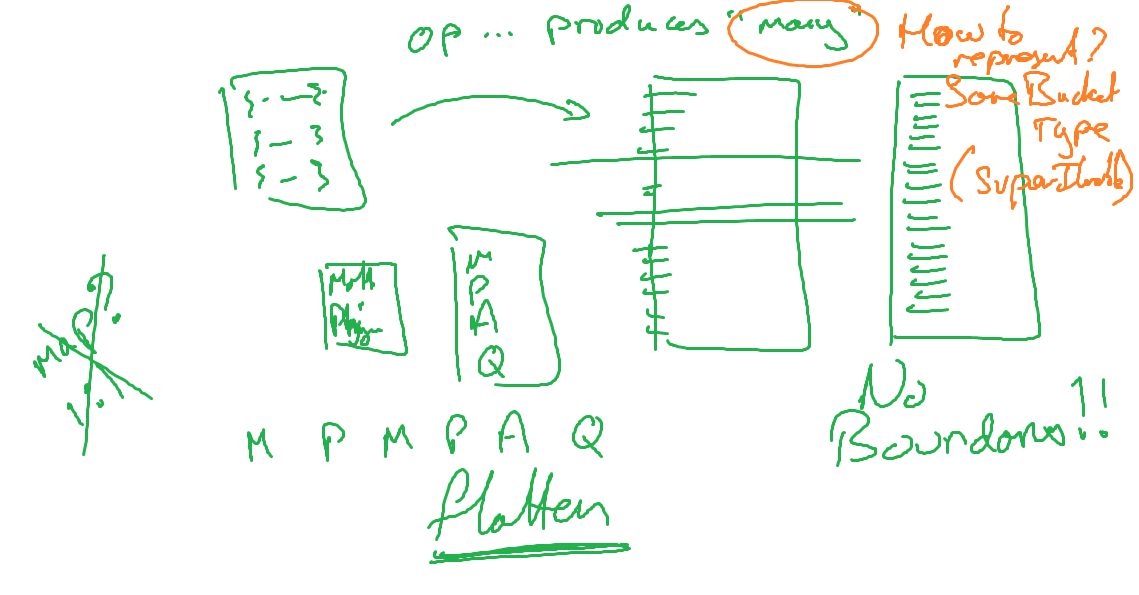 Op ... produces "many"
How to
represent?
Some Bucket
Type
(SuperIterable)
{ - }
{ - }
{ - }
Math
Phys
M
P
A
Q
Map
1:1
M P M P A Q
flatten
No
Boundaries!!